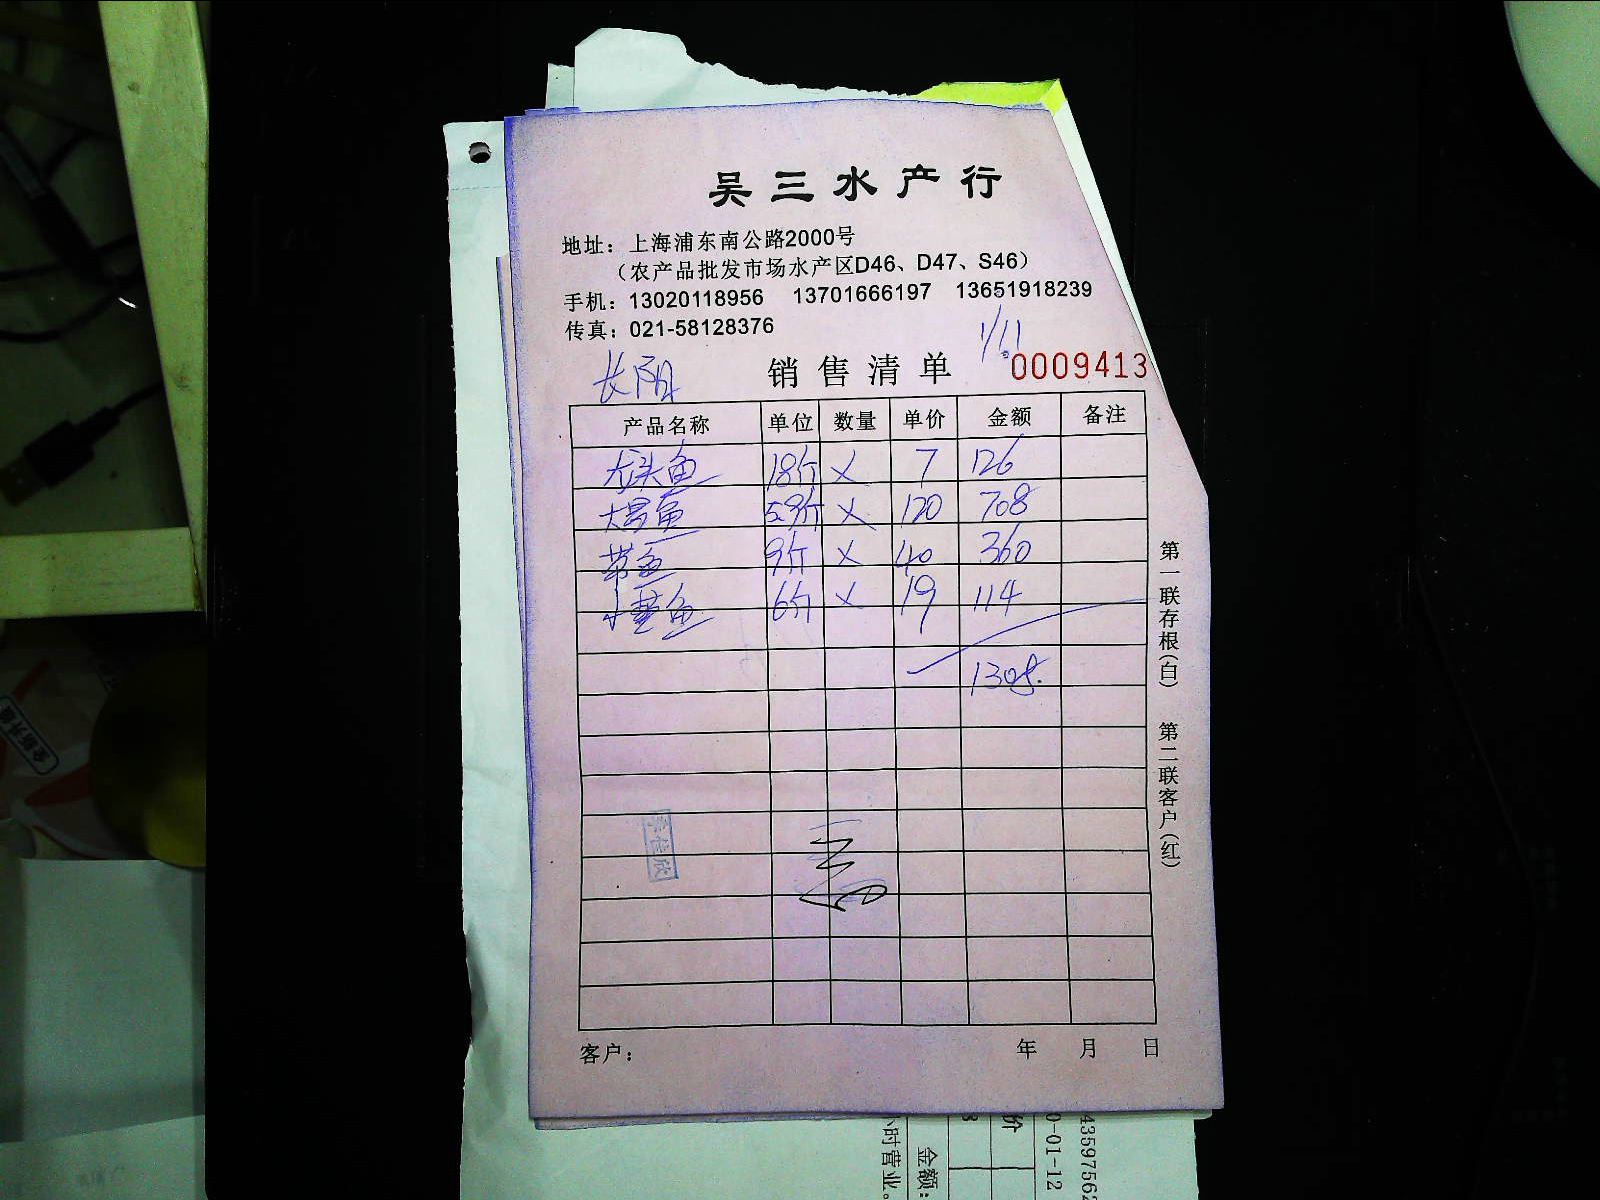 吴三水产行
地址：上海浦东南公路2000号
（农产品批发市场水产区D46、D47、S46）
手机：13020118956 13701666197 13651918239
传真：021-58128376
1/11
长阳 销售清单 0009413
产品名称 单位 数量 单价 金额 备注
龙头鱼 18斤 × 7 126
大昌鱼 5.9斤 × 120 708
带鱼 9斤 × 40 360
小黄鱼 6斤 × 19 114
1308.
第一联存根(白) 第二联客户(红)
佳欣
客户： 年 月 日
小时营业。
金额：
价
0-01-12
4359756